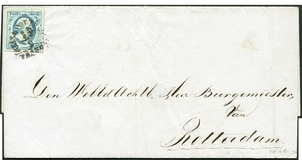 Den WelEdAchtb. Heer Burgemeester,
Van
Rotterdam